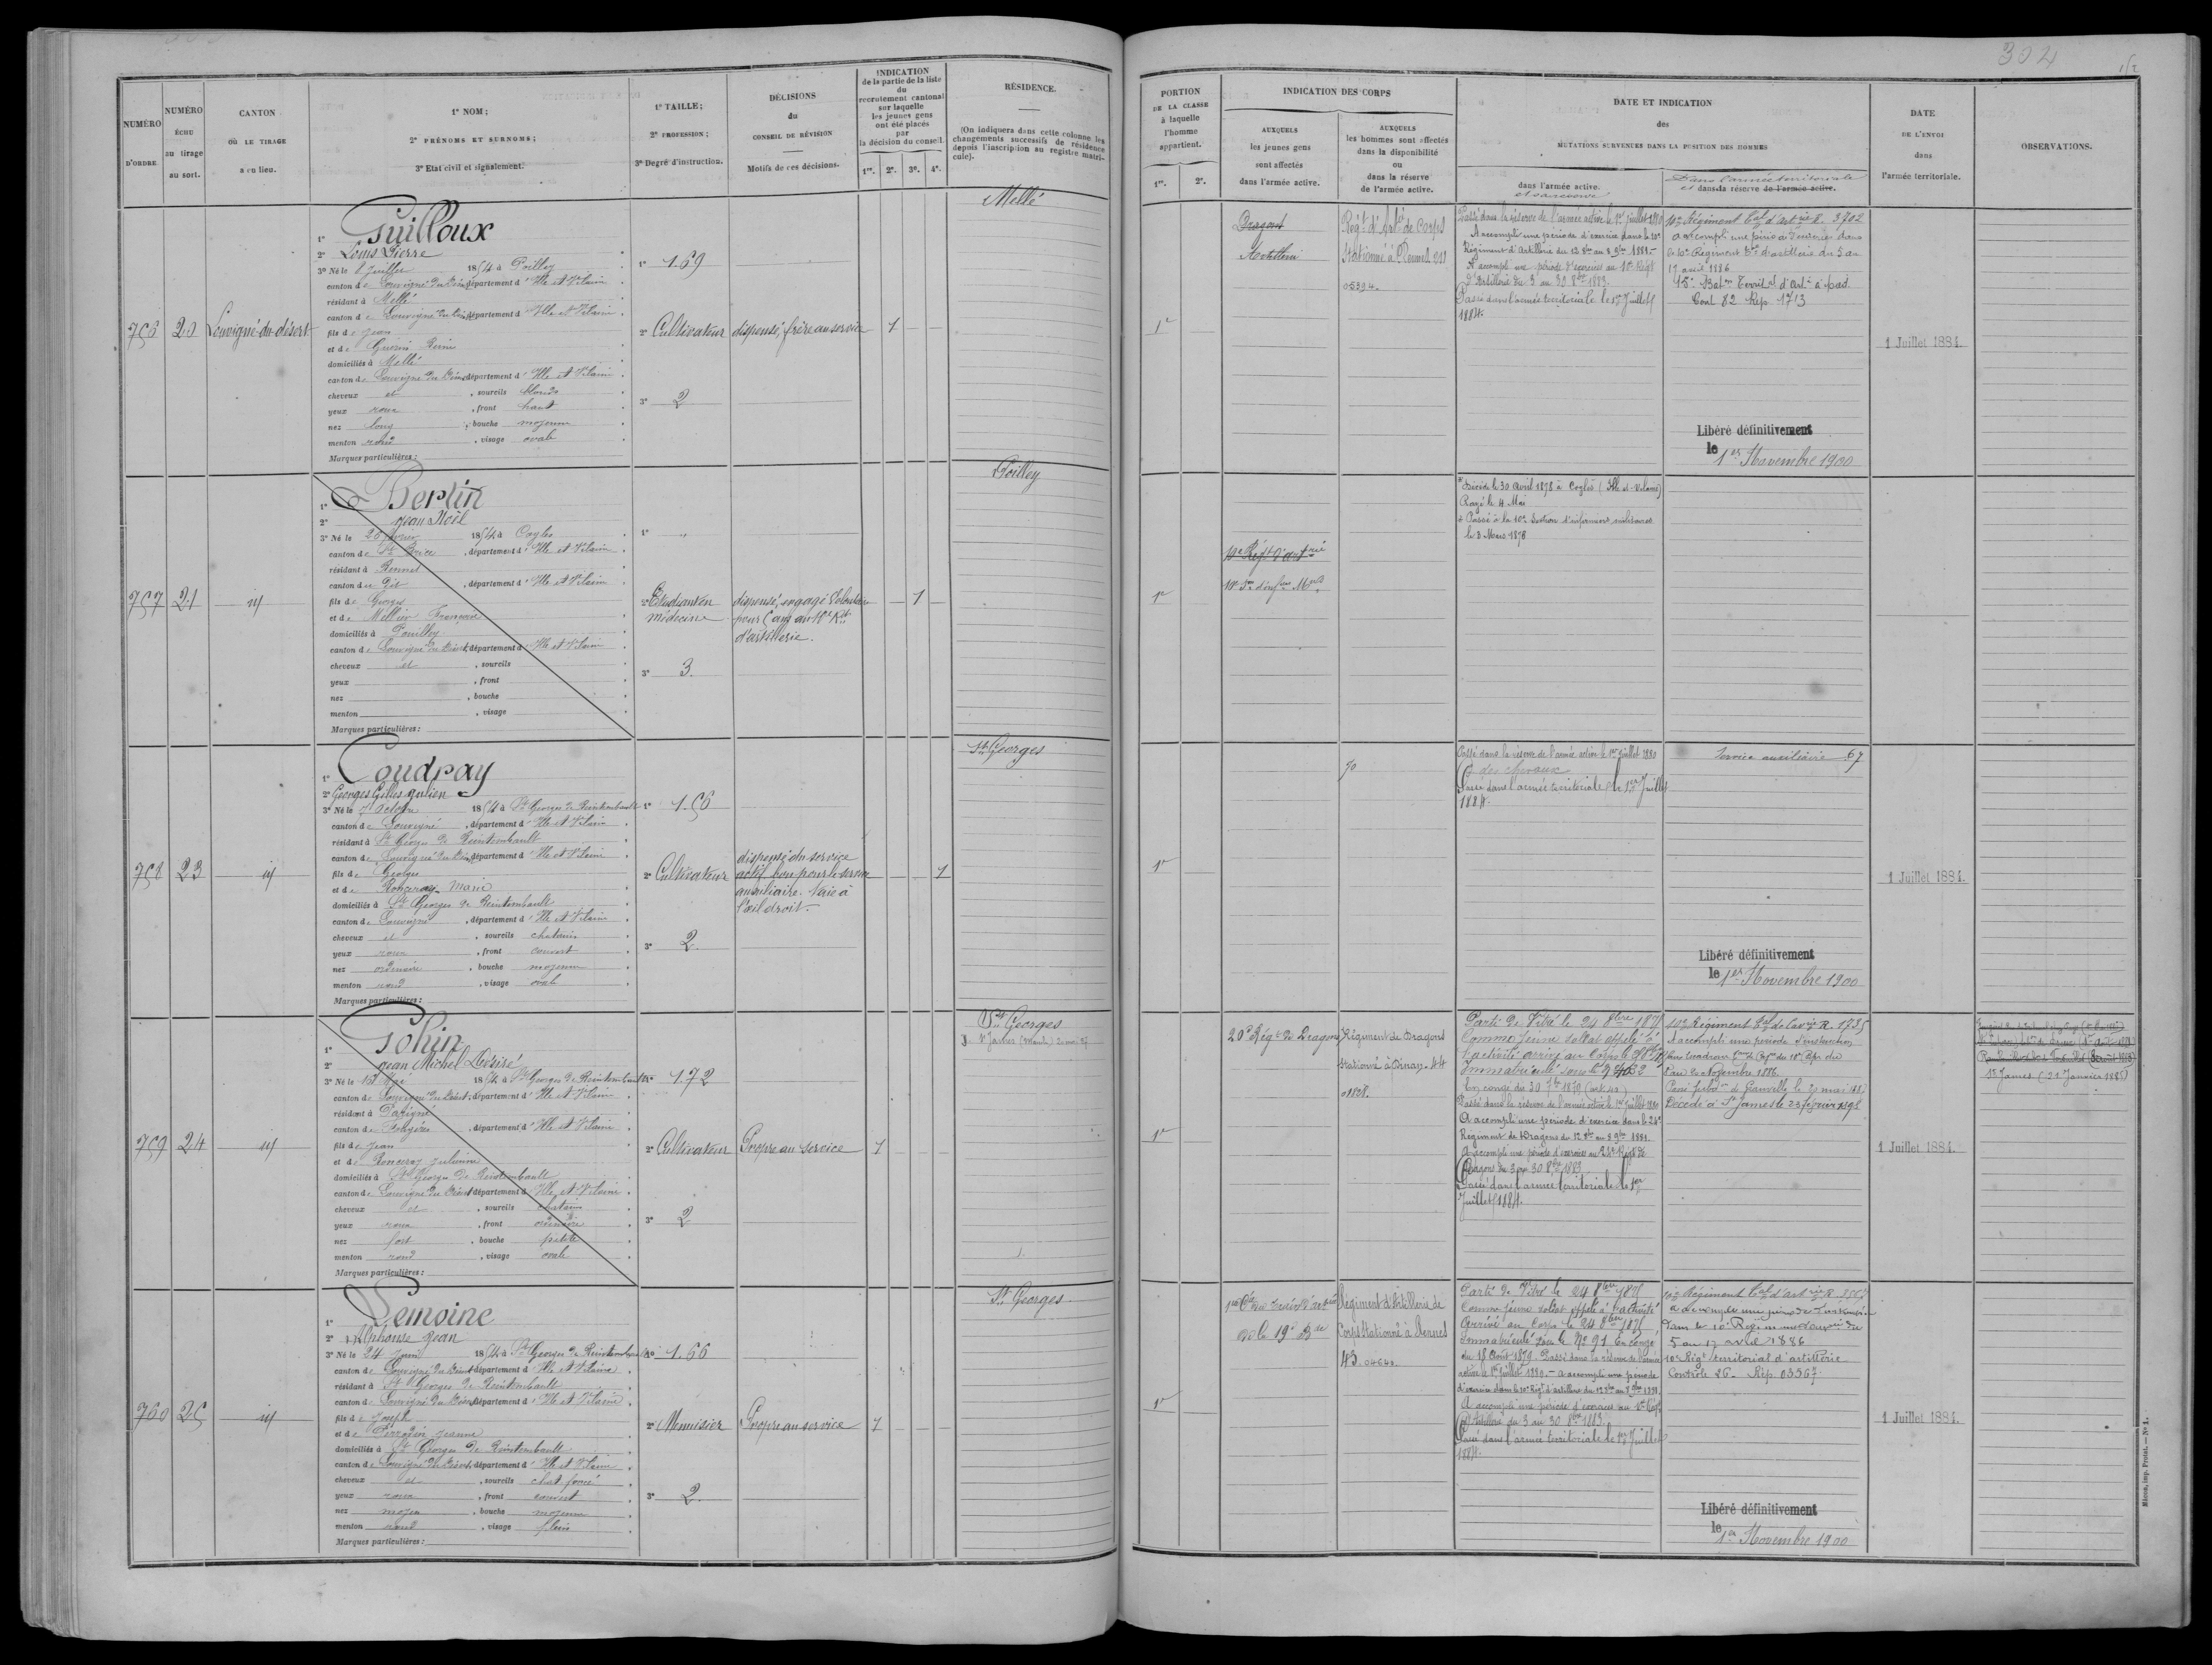 304
NUMÉRO D'ORDRE
NUMÉRO ÉCHU au tirage au sort.
CANTON OÙ LE TIRAGE a eu lieu.
1° NOM;
2° PRÉNOMS ET SURNOMS;
3° Etat civil et signalement.
1° TAILLE;
2° PROFESSION;
3° Degré d'instruction.
DÉCISIONS du CONSEIL DE RÉVISION
Motifs de ces décisions.
INDICATION de la partie de la liste du recrutement cantonal sur laquelle les jeunes gens ont été placés par la décision du conseil.
1re. 2e. 3e. 4e.
RÉSIDENCE.
(On indiquera dans cette colonne les changements successifs de résidence depuis l'inscription au registre matricule).
PORTION DE LA CLASSE à laquelle l'homme appartient.
1re. 2e.
INDICATION DES CORPS
AUXQUELS les jeunes gens sont affectés dans l'armée active.
AUXQUELS les hommes sont affectés dans la disponibilité ou dans la réserve de l'armée active.
DATE ET INDICATION des MUTATIONS SURVENUES DANS LA POSITION DES HOMMES
dans l'armée active.
et sa réserve
Dans l'armée territoriale
et dans la réserve de l'armée active.
DATE DE L'ENVOI dans l'armée territoriale.
OBSERVATIONS.
756
20
Louvigné-du-désert
1° Guilloux
2° Louis Pierre
3° Né le 8 Juillet 1854 à Poilley
canton de Louvigné du Désert, département d'Ille et Vilaine
résidant à Mellé
canton de Louvigné du Désert, département d'Ille et Vilaine
fils de Jean
et de
domiciliés à Mellé
canton de Louvigné du Désert, département d'Ille et Vilaine
cheveux et, sourcils blonds
yeux roux, front haut
nez long, bouche moyenne
menton rond, visage ovale
Marques particulières:
1° 1.69
2° Cultivateur
3° 2
dispensé, frère au service
1
Mellé
1re
Dragons
Artillerie
Régt d'Artie de Corps
Stationné à Rennes 211
05394.
Passé dans la réserve de l'armée active le 1er Juillet 1880
A accompli une période d'exercice dans le 10e
Régiment d'Artillerie du 12 8bre au 8 9bre 1881.
A accompli une période d'exercices au 10e Régt
d'Artillerie du 3 au 30 8bre 1883.
Passé dans l'armée territoriale le 1er Juillet
1884.
10e Régiment Tal d'artrie R. 3702
a accompli une période d'exercices dans
le 10e Régiment Tal d'artillerie du 5 au
17 avril 1886
15e Baton Territal d'Artie à pied.
Cont 82 Rép. 1713
Libéré définitivement
le 1er Novembre 1900
1 Juillet 1884.
757
21
id
1° Bertin
2° Jean Noël
3° Né le 26 février 1854 à Cogles
canton de St Brice, département d'Ille et Vilaine
résidant à Rennes
canton de dit, département d'Ille et Vilaine
fils de Georges
et de Millier Françoise
domiciliés à Poilley
canton de Louvigné du Désert, département d'Ille et Vilaine
cheveux et, sourcils
yeux, front
nez, bouche
menton, visage
Marques particulières:
1° "
2° Etudiant en médecine
3° 3.
dispensé, engagé Volontaire
pour 5 ans au 10e Rt
d'artillerie.
1
Poilley
1re
10e Régt d'artrie
10e Son d'infres Mres
Décédé le 30 avril 1878 à Coglès (Ille-et-Vilaine)
Rayé le 4 Mai
Passé à la 10e Section d'infirmiers militaires
le 3 Mars 1876
758
23
id
1° Coudray
2° Georges Gilles Julien
3° Né le 7 octobre 1854 à St Georges de Reintembault
canton de Louvigné, département d'Ille et Vilaine
résidant à St Georges de Reintembault
canton de Louvigné du Désert, département d'Ille et Vilaine
fils de Georges
et de Ronceray Marie
domiciliés à St Georges de Reintembault
canton de Louvigné, département d'Ille et Vilaine
cheveux et, sourcils chatains
yeux roux, front couvert
nez ordinaire, bouche moyenne
menton rond, visage ovale
Marques particulières:
1° 1.56
2° Cultivateur
3° 2.
dispensé du service
actif, bon pour le service
auxiliaire. Taie à
l'œil droit.
1
St Georges
1re
70
Passé dans la réserve de l'armée active le 1er Juillet 1880
des chevaux
Passé dans l'armée territoriale le 1er Juillet
1884.
Service auxiliaire 67
Libéré définitivement
le 1er Novembre 1900
1 Juillet 1884.
759
24
id
1° Gohin
2° Jean Michel Désiré
3° Né le 13 Mai 1854 à St Georges de Reintembault
canton de Louvigné du Désert, département d'Ille et Vilaine
résidant à Parigné
canton de Fougères, département d'Ille et Vilaine
fils de Jean
et de Ronceray Julienne
domiciliés à St Georges de Reintembault
canton de Louvigné du Désert, département d'Ille et Vilaine
cheveux et, sourcils chatains
yeux roux, front ordinaire
nez fort, bouche petite
menton rond, visage ovale
Marques particulières:
1° 1.72
2° Cultivateur
3° 2
Propre au service
1
St Georges
St James (Manche)
1re
20e Régt de Dragons
Régiment de Dragons
Stationné à Dinan. 44
01828.
Parti de Vitré le 24 8bre 1875
Comme jeune soldat appelé à
l'activité arrivé au Corps le
Immatriculé sous le
En congé du 30 7bre 1879
Passé dans la réserve de l'armée active le 1er Juillet 1880
A accompli une période d'exercice dans le 24e
Régiment de Dragons du 12 8bre au 8 9bre 1881.
A accompli une période d'exercices au 24e Régt de
Dragons du 3 au 30 8bre 1883
Passé dans l'armée territoriale le 1er
Juillet 1884.
10e Régiment Tal de Cavrie R. 1735
A accompli une période d'instruction
9 au 20 Novembre 1886.
Passé subdon de Granville le 20 mai 1887
Décédé à St James le 23 février 1898
1 Juillet 1884.
St James (21 Janvier 1885)
760
25
id
1° Lemoine
2° Alphonse Jean
3° Né le 24 Juin 1854 à St Georges de Reintembault
canton de Louvigné du Désert, département d'Ille et Vilaine
résidant à St Georges de Reintembault
canton de Louvigné du Désert, département d'Ille et Vilaine
fils de Joseph
et de Jeanne
domiciliés à St Georges de Reintembault
canton de Louvigné du Désert, département d'Ille et Vilaine
cheveux et, sourcils chat. foncé
yeux roux, front couvert
nez moyen, bouche moyenne
menton rond, visage plein
Marques particulières:
1° 1.66
2° Menuisier
3° 2.
Propre au service
1
St Georges
1re
de la 19e Bde
Régiment d'Artillerie de
Corps Stationné à Rennes
43.
Parti de Vitré le 24 8bre 1875
Comme jeune soldat appelé à l'activité
Arrivé au Corps le 24 8bre 1875
Immatriculé sous le No 91 En congé
du 18 Août 1879. Passé dans la réserve de l'armée
active le 1er Juillet 1880. - a accompli une période
d'exercice dans le 10e Régt d'artillerie du 12 8bre au 8 9bre 1881.
A accompli une période d'exercices au 10e Régt
d'Artillerie du 3 au 30 8bre 1883.
Passé dans l'armée territoriale le 1er Juillet
1884.
10e Régiment Tal d'artrie R.
a accompli une période d'instruction
dans le 10e Régiment
5 au 17 avril 1886
10e Régt territorial d'artillerie
Contrôle 26. Rép. 03367.
Libéré définitivement
le 1er Novembre 1900
1 Juillet 1884.
Mâcon, imp. Protat. — N° 1.